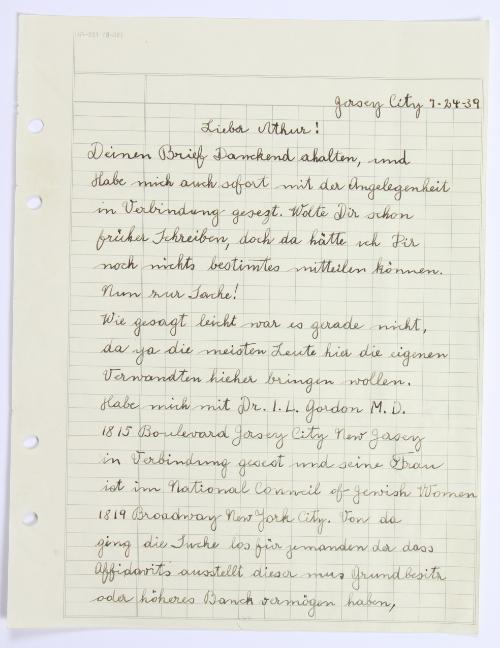 Jersey City 7-24-39
Lieber Arthur!
Deinen Brief Danckend ahalten, und
Habe mich auch sofort mit der Angelegenheit
in Verbindung gesezt. Wolte Dir schon
früher Schreiben, doch da hätte ich Dir
noch nichts bestimtes mitteilen können.
Nun zur Sache!
Wie gesagt leicht war es gerade nicht,
da ja die meisten Leute hier die eigenen
Verwandten hieher bringen wollen.
Habe mich mit Dr. I. L. Gordon M. D.
1815 Boulevard Jersey City New Jersey
in Verbindung gesezt und seine Frau
ist im National Council of Jewish Women
1819 Broadway New York City. Von da
ging die Suche los für jemanden der dass
Affidavits ausstellt dieser mus Grundbesitz
oder höheres Banck vermögen haben,